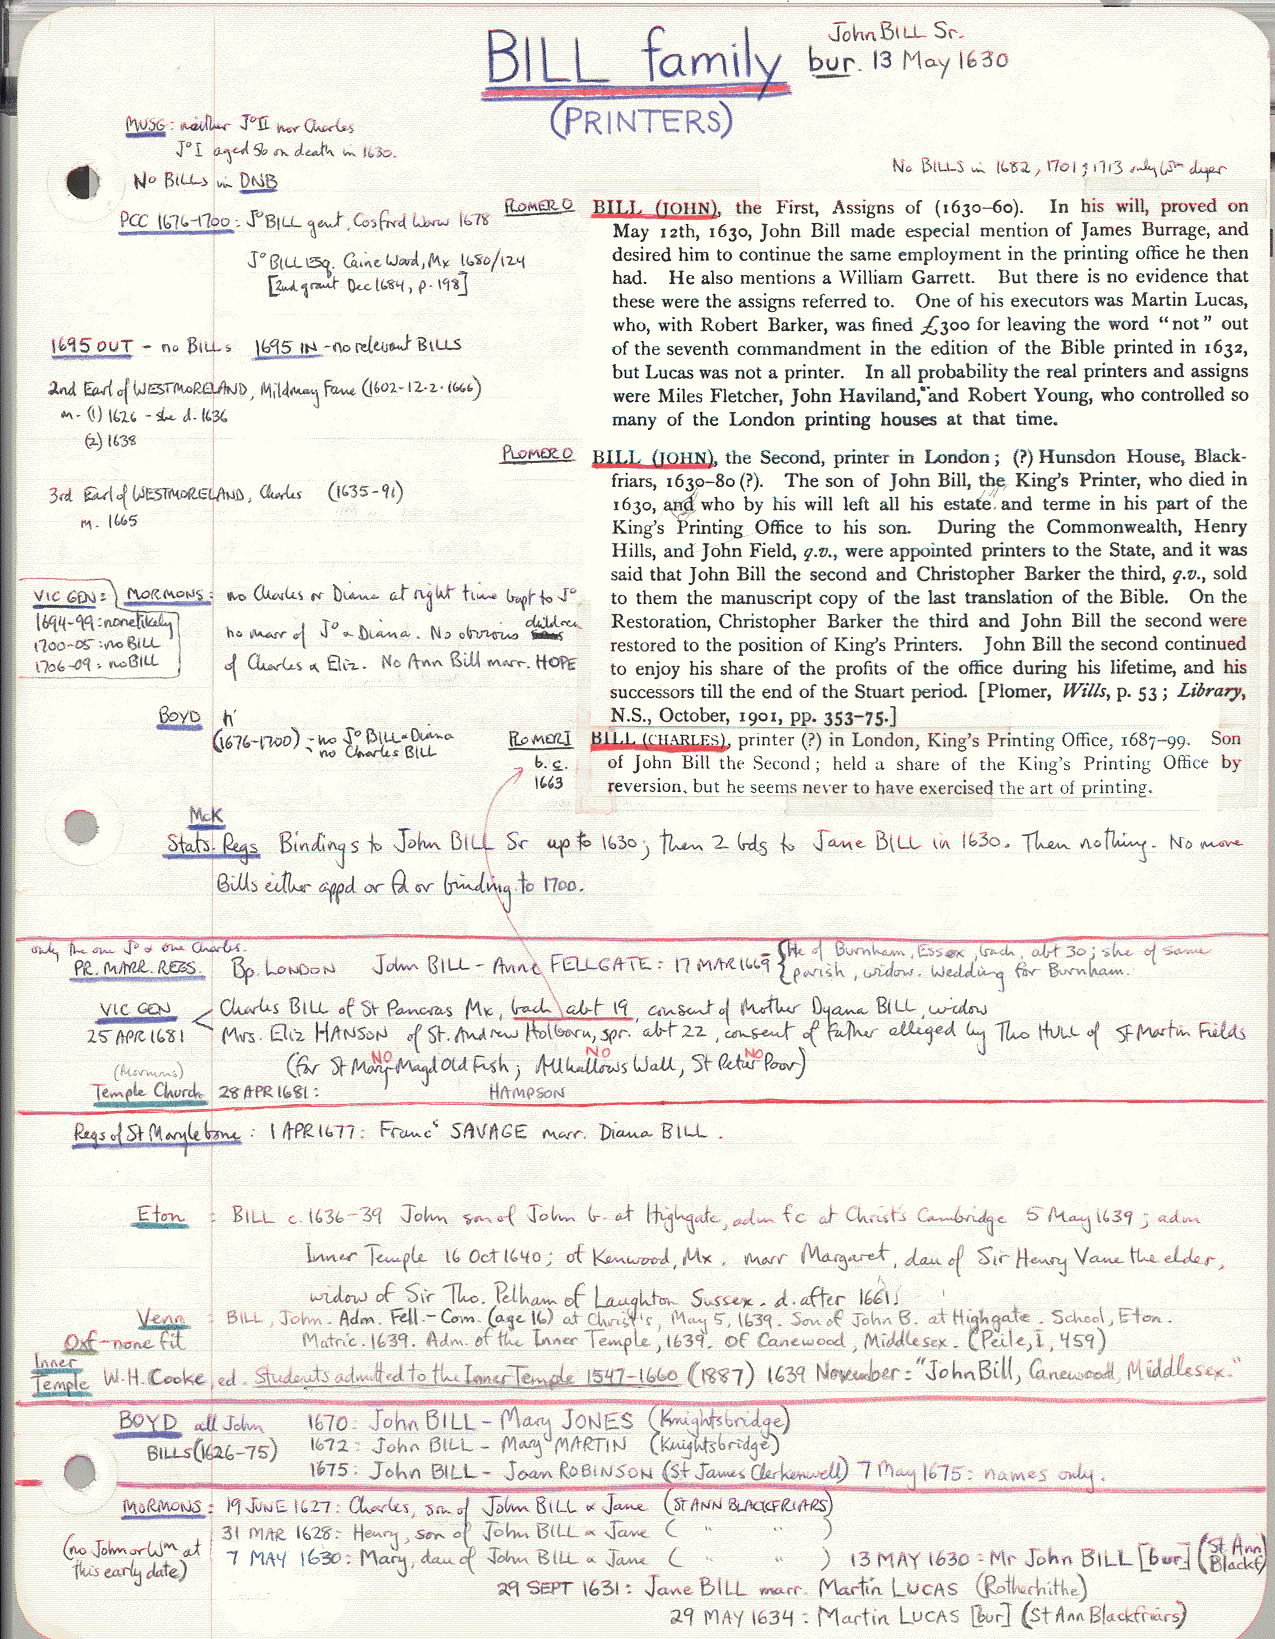 BILL family
John BILL Sr.
bur. 13 May 1630
(PRINTERS)
MUSG: neither Jº II nor Charles
Jº I aged 56 on death in 1630.
No BILLS in DNB
No BILLS in 1682, 1701; 1713 only Wm dyer
PCC 1676-1700: Jº BILL gent, Cosford Warw 1678
Jº BILL Esq. Caine Wood, Mx 1680/124
[2nd grant Dec 1684, p. 198]
1695 OUT - no BILLs 1695 IN - no relevant BILLS
2nd Earl of WESTMORELAND, Mildmay Fane (1602-12.2.1666)
m. (1) 1626 - she d. 1636
(2) 1638
3rd Earl of WESTMORELAND, Charles (1635-91)
m. 1665
PLOMER O
BILL (JOHN), the First, Assigns of (1630–60). In his will, proved on
May 12th, 1630, John Bill made especial mention of James Burrage, and
desired him to continue the same employment in the printing office he then
had. He also mentions a William Garrett. But there is no evidence that
these were the assigns referred to. One of his executors was Martin Lucas,
who, with Robert Barker, was fined £300 for leaving the word "not" out
of the seventh commandment in the edition of the Bible printed in 1632,
but Lucas was not a printer. In all probability the real printers and assigns
were Miles Fletcher, John Haviland, and Robert Young, who controlled so
many of the London printing houses at that time.
PLOMER O
BILL (JOHN), the Second, printer in London; (?) Hunsdon House, Black-
friars, 1630–80 (?). The son of John Bill, the King's Printer, who died in
1630, and who by his will left all his estate and terme in his part of the
King's Printing Office to his son. During the Commonwealth, Henry
Hills, and John Field, q.v., were appointed printers to the State, and it was
said that John Bill the second and Christopher Barker the third, q.v., sold
to them the manuscript copy of the last translation of the Bible. On the
Restoration, Christopher Barker the third and John Bill the second were
restored to the position of King's Printers. John Bill the second continued
to enjoy his share of the profits of the office during his lifetime, and his
successors till the end of the Stuart period. [Plomer, Wills, p. 53; Library,
N.S., October, 1901, pp. 353–75.]
VIC GEN:
1694-99: none likely
1700-05: no BILL
1706-09: no BILL
MORMONS: no Charles or Diana at right time bapt to Jº
no marr of Jº & Diana. No obvious children
of Charles & Eliz. No Ann Bill marr. HOPE
BOYD
(1676-1700) - no Jº BILL & Diana
- no Charles BILL
PLOMER I
b. c.
1663
BILL (CHARLES), printer (?) in London, King's Printing Office, 1687–99. Son
of John Bill the Second; held a share of the King's Printing Office by
reversion, but he seems never to have exercised the art of printing.
McK
Stats. Regs Bindings to John BILL Sr up to 1630; then 2 bdgs to Jane BILL in 1630. Then nothing. No more
Bills either appd or fd or binding to 1700.
only the one Jº & one Charles.
PR. MARR. REGS Bp. LONDON John BILL - Anne FELLGATE: 17 MAR 1669
{He of Burnham, Essex, bach, abt 30; she of same
parish, widow. Wedding for Burnham.
VIC GEN
25 APR 1681
Charles BILL of St Pancras Mx, bach abt 19, consent of Mother Dyana BILL, widow
Mrs. Eliz HANSON of St. Andrew Holborn, spr. abt 22, consent of father alleged by Tho HULL of St Martin Fields
(for St Mary Magd Old Fish; Allhallows Wall, St Peter Poor)
NO NO NO
(Mormons)
Temple Church 28 APR 1681: HAMPSON
Regs of St Marylebone: 1 APR 1677: Francs SAVAGE marr. Diana BILL.
Eton: BILL c. 1636-39 John son of John b. at Highgate, adm fc at Christ's Cambridge 5 May 1639; adm
Inner Temple 16 Oct 1640; of Kenwood, Mx. marr Margaret, dau of Sir Henry Vane the elder,
widow of Sir Tho. Pelham of Laughton Sussex. d. after 1661.
Venn: BILL, John. Adm. Fell.-Com. (age 16) at Christ's, May 5, 1639. Son of John B. at Highgate. School, Eton.
Matric. 1639. Adm. of the Inner Temple, 1639. Of Canewood, Middlesex. (Peile, I, 459)
Oxf - none fit
Inner Temple W.H. Cooke, ed. Students admitted to the Inner Temple 1547-1660 (1887) 1639 November: "John Bill, Canewood, Middlesex."
BOYD all John
BILLS (1626-75)
1670: John BILL - Mary JONES (Knightsbridge)
1672: John BILL - Mary MARTIN (Knightsbridge)
1675: John BILL - Joan ROBINSON (St James Clerkenwell) 7 May 1675: names only.
MORMONS: 19 JUNE 1627: Charles, son of John BILL & Jane (ST ANN BLACKFRIARS)
31 MAR 1628: Henry, son of John BILL & Jane ( " " )
(no John or Wm at
this early date)
7 MAY 1630: Mary, dau of John BILL & Jane ( " " ) 13 MAY 1630: Mr John BILL [bur] (St Ann Blackf)
29 SEPT 1631: Jane BILL marr. Martin LUCAS (Rotherhithe)
29 MAY 1634: Martin LUCAS [bur] (St Ann Blackfriars)